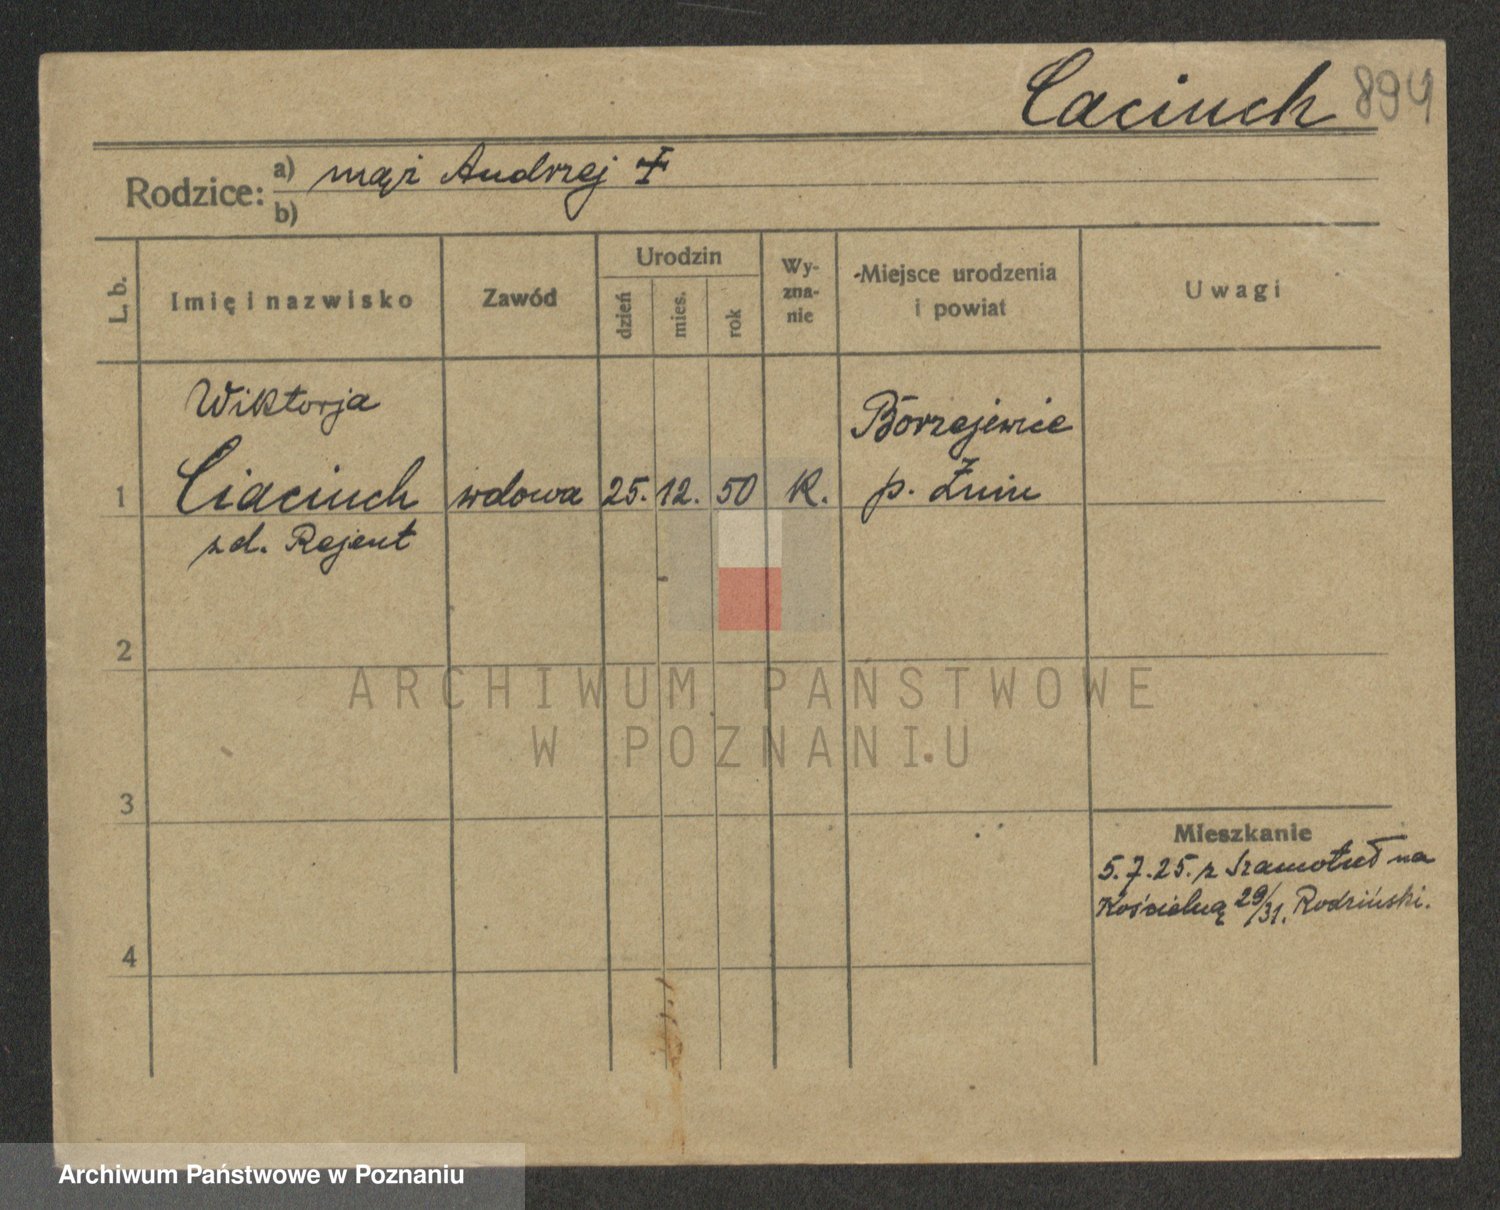 Caciuch 894
Rodzice:
a) mąż Andrzej ✝
b)
L. b.
Imię i nazwisko
Zawód
Urodzin
dzień
mies.
rok
Wy-
zna-
nie
Miejsce urodzenia
i powiat
Uwagi
Wiktorja
Borzejewice
1 Ciaciuch wdowa 25. 12. 50 K. p. Żnin
zd. Rejent
2
ARCHIWUM PAŃSTWOWE
W POZNANIU
3
Mieszkanie
5.7.25. z Szamotuł na
Kościelną 29/31. Rodziński.
4
Archiwum Państwowe w Poznaniu